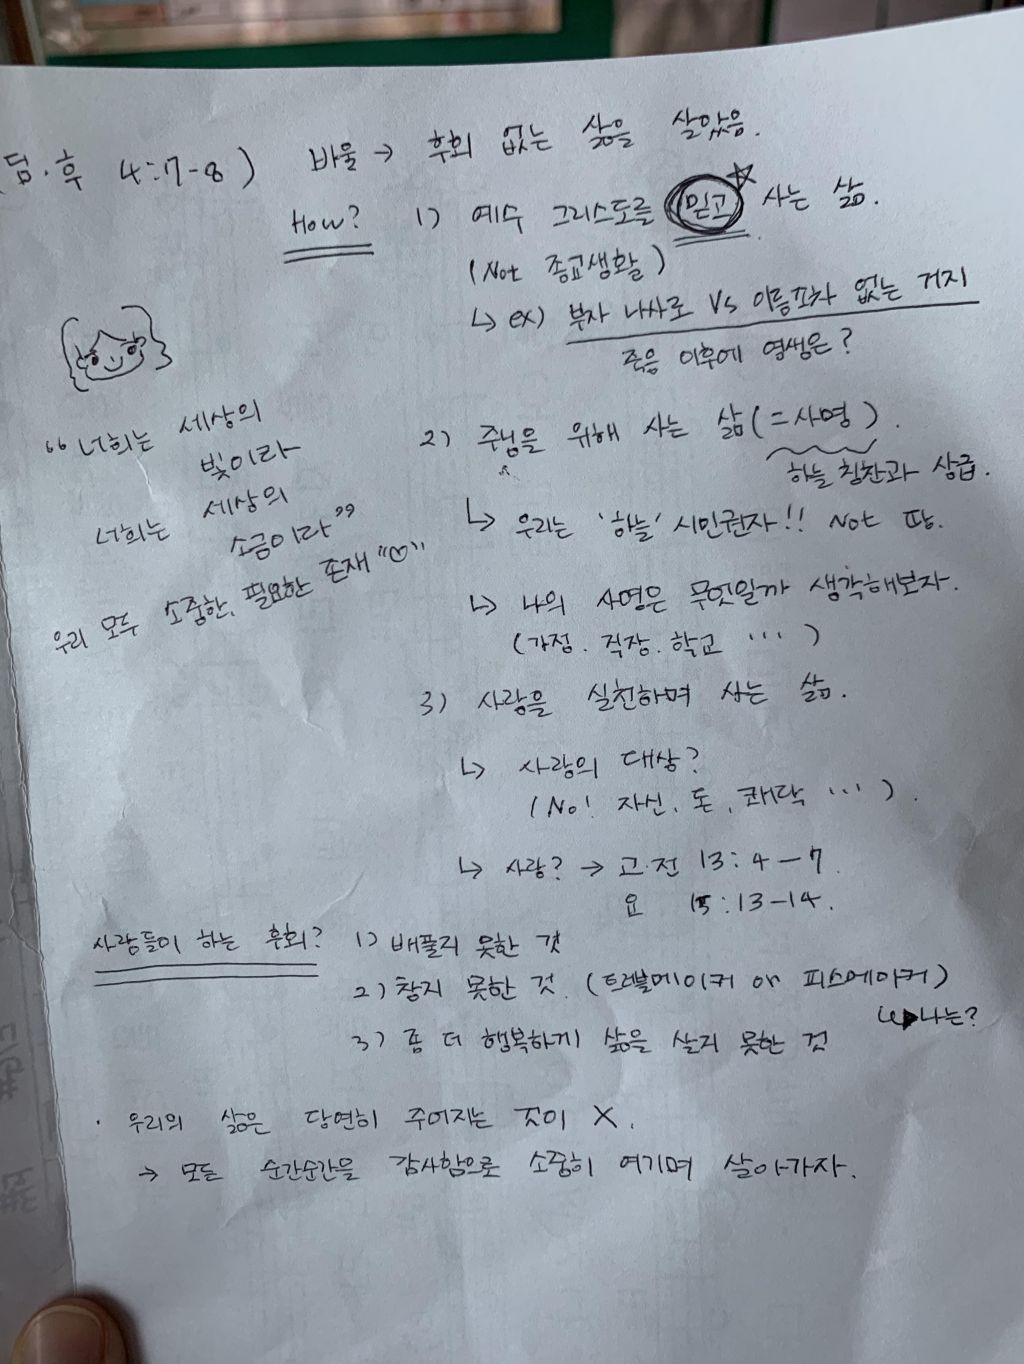 (딤.후 4:7-8) 바울 → 후회 없는 삶을 살았음.
How? 1) 예수 그리스도를 믿고 사는 삶.
(Not 종교생활)
↳ ex) 부자 나사로 Vs 이름조차 없는 거지
죽음 이후에 영생은?
2) 주님을 위해 사는 삶 (=사명).
하늘 칭찬과 상급.
↳ 우리는 '하늘' 시민권자!! Not 땅.
↳ 나의 사명은 무엇일까 생각해보자.
(가정. 직장. 학교 ...)
3) 사랑을 실천하며 사는 삶.
↳ 사랑의 대상?
(No! 자신, 돈, 쾌락 ...).
↳ 사랑? → 고.전 13:4-7.
요 15:13-14.
"너희는 세상의
빛이라
너희는 세상의
소금이라"
우리 모두 소중한, 필요한 존재 "♡"
사람들이 하는 후회? 1) 베풀지 못한 것
2) 참지 못한 것. (트러블메이커 or 피스메이커)
↳ 나는?
3) 좀 더 행복하게 삶을 살지 못한 것
· 우리의 삶은 당연히 주어지는 것이 X.
→ 모든 순간순간을 감사함으로 소중히 여기며 살아가자.